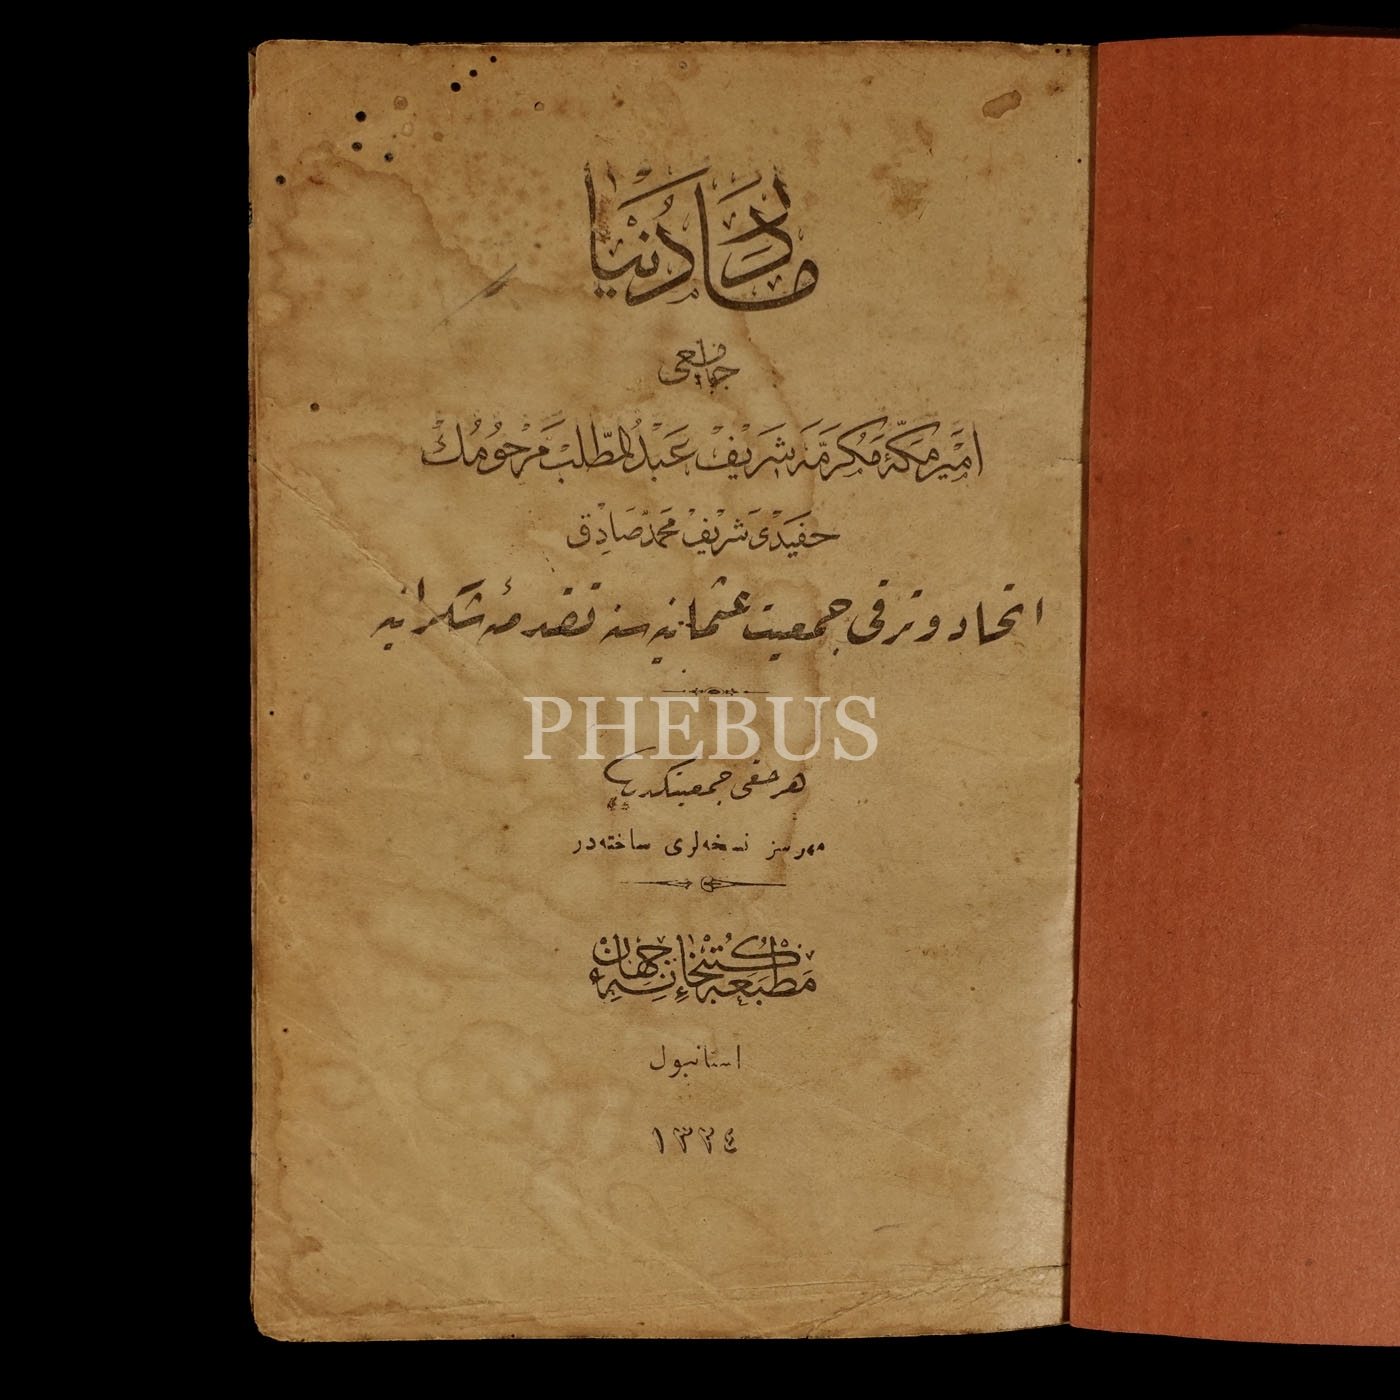 مادر دنیا
جامعی
امیر مكهٔ مكرمه شریف عبدالمطلب مرحومك
حفیدی شریف محمد صادق
اتحاد و ترقی جمعیت عثمانیه سنه تقدمهٔ شكرانیه
PHEBUS
هر حقی جمعیتكدر
مهر سز نسخه لری ساخته در
مطبعه كتبخانهٔ جهان
استانبول
١٣٢٤